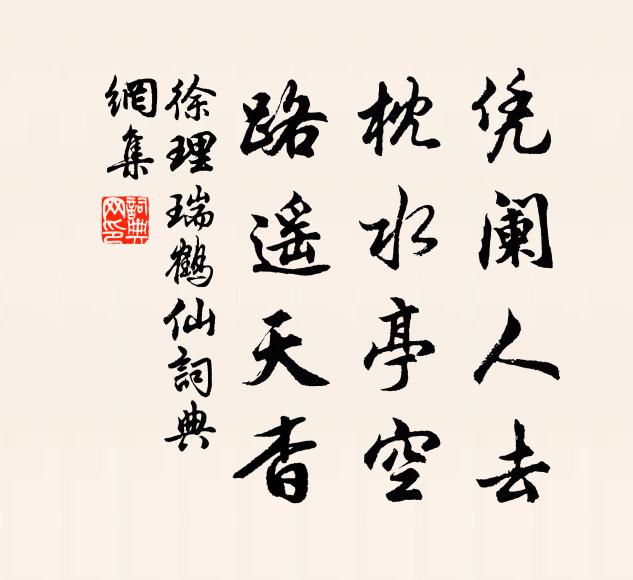 凭阑人去
枕水亭空
路遥天杳
徐理瑞鹤仙詞典
網集
詞典
网印